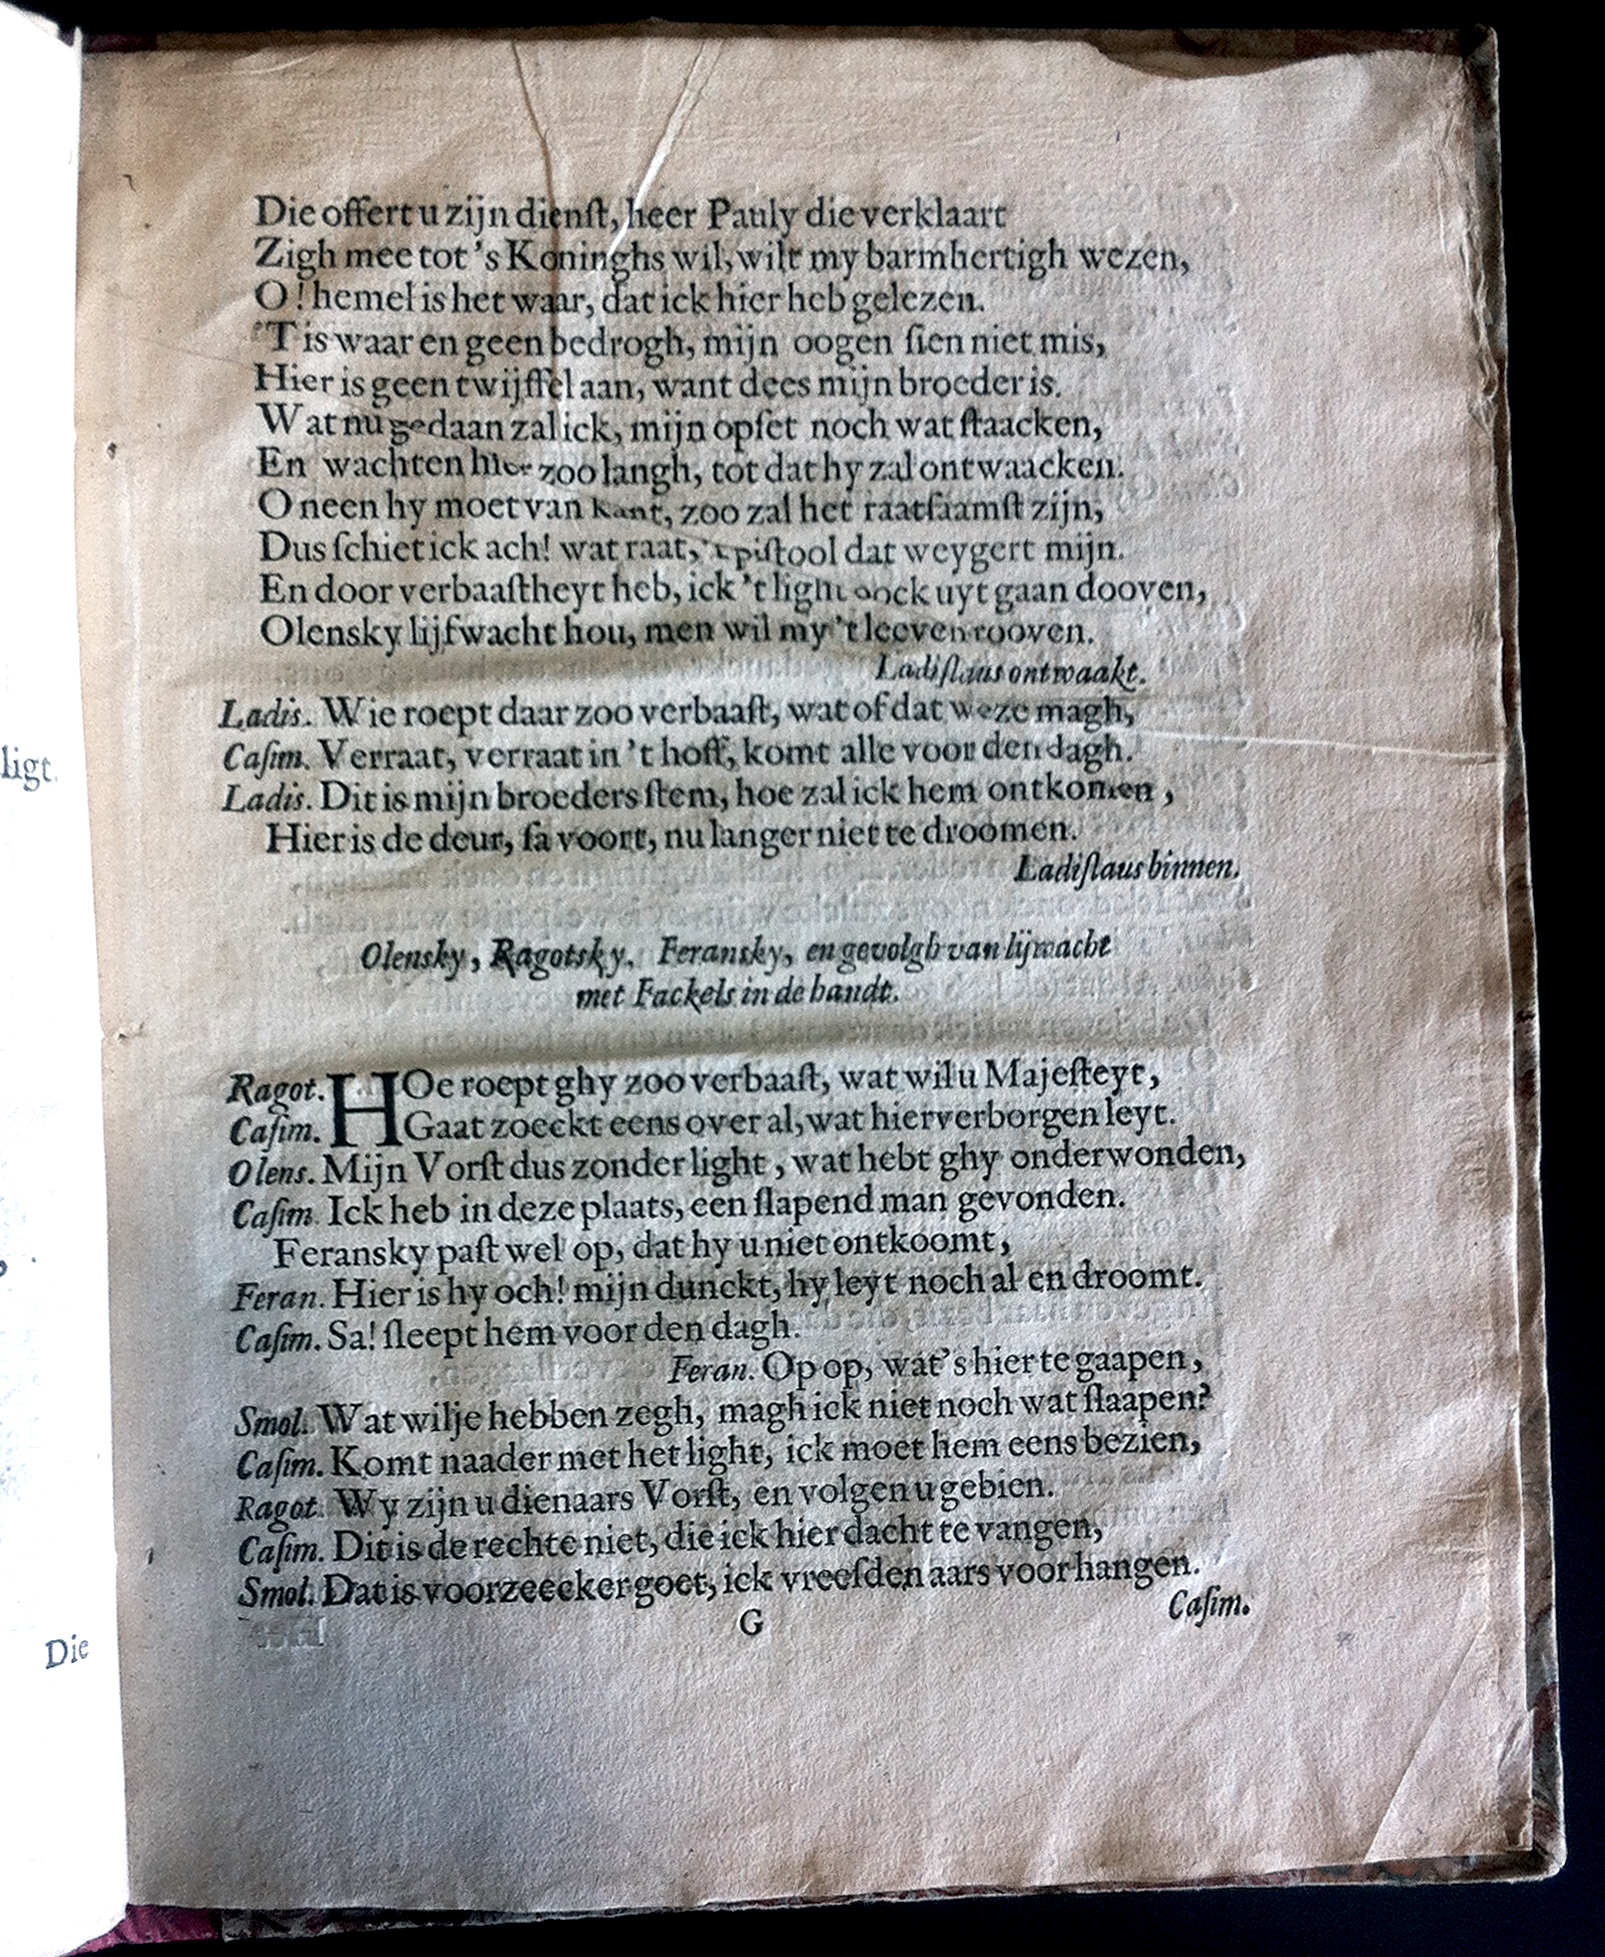 ligt.
Die
Die offert u zijn dienſt, heer Pauly die verklaart
Zigh mee tot 's Koninghs wil, wilt my barmhertigh wezen,
O! hemel is het waar, dat ick hier heb gelezen.
'T is waar en geen bedrogh, mijn oogen ſien niet mis,
Hier is geen twijffel aan, want dees mijn broeder is.
Wat nu gedaan zal ick, mijn opſet noch wat ſtaacken,
En wachten hier zoo langh, tot dat hy zal ontwaacken.
O neen hy moet van kant, zoo zal het raatſaamſt zijn,
Dus ſchiet ick ach! wat raat, 't piſtool dat weygert mijn.
En door verbaaſtheyt heb, ick 't light oock uyt gaan dooven,
Olensky lijfwacht hou, men wil my 't leeven rooven.
Ladiſlaus ontwaakt.
Ladis. Wie roept daar zoo verbaaſt, wat of dat weze magh,
Caſim. Verraat, verraat in 't hoff, komt alle voor den dagh.
Ladis. Dit is mijn broeders ſtem, hoe zal ick hem ontkomen,
Hier is de deur, ſa voort, nu langer niet te droomen.
Ladiſlaus binnen.
Olensky, Ragotsky, Feransky, en gevolgh van lijwacht
met Fackels in de handt.
Ragot. HOe roept ghy zoo verbaaſt, wat wil u Majeſteyt,
Caſim. Gaat zoeckt eens over al, wat hier verborgen leyt.
Olens. Mijn Vorſt dus zonder light, wat hebt ghy onderwonden,
Caſim. Ick heb in deze plaats, een ſlapend man gevonden.
Feransky paſt wel op, dat hy u niet ontkoomt,
Feran. Hier is hy och! mijn dunckt, hy leyt noch al en droomt.
Caſim. Sa! ſleept hem voor den dagh.
Feran. Op op, wat's hier te gaapen,
Smol. Wat wilje hebben zegh, magh ick niet noch wat ſlaapen?
Caſim. Komt naader met het light, ick moet hem eens bezien,
Ragot. Wy zijn u dienaars Vorſt, en volgen u gebien.
Caſim. Dit is de rechte niet, die ick hier dacht te vangen,
Smol. Dat is voorzeecker goet, ick vreeſden aars voor hangen.
G
Caſim.